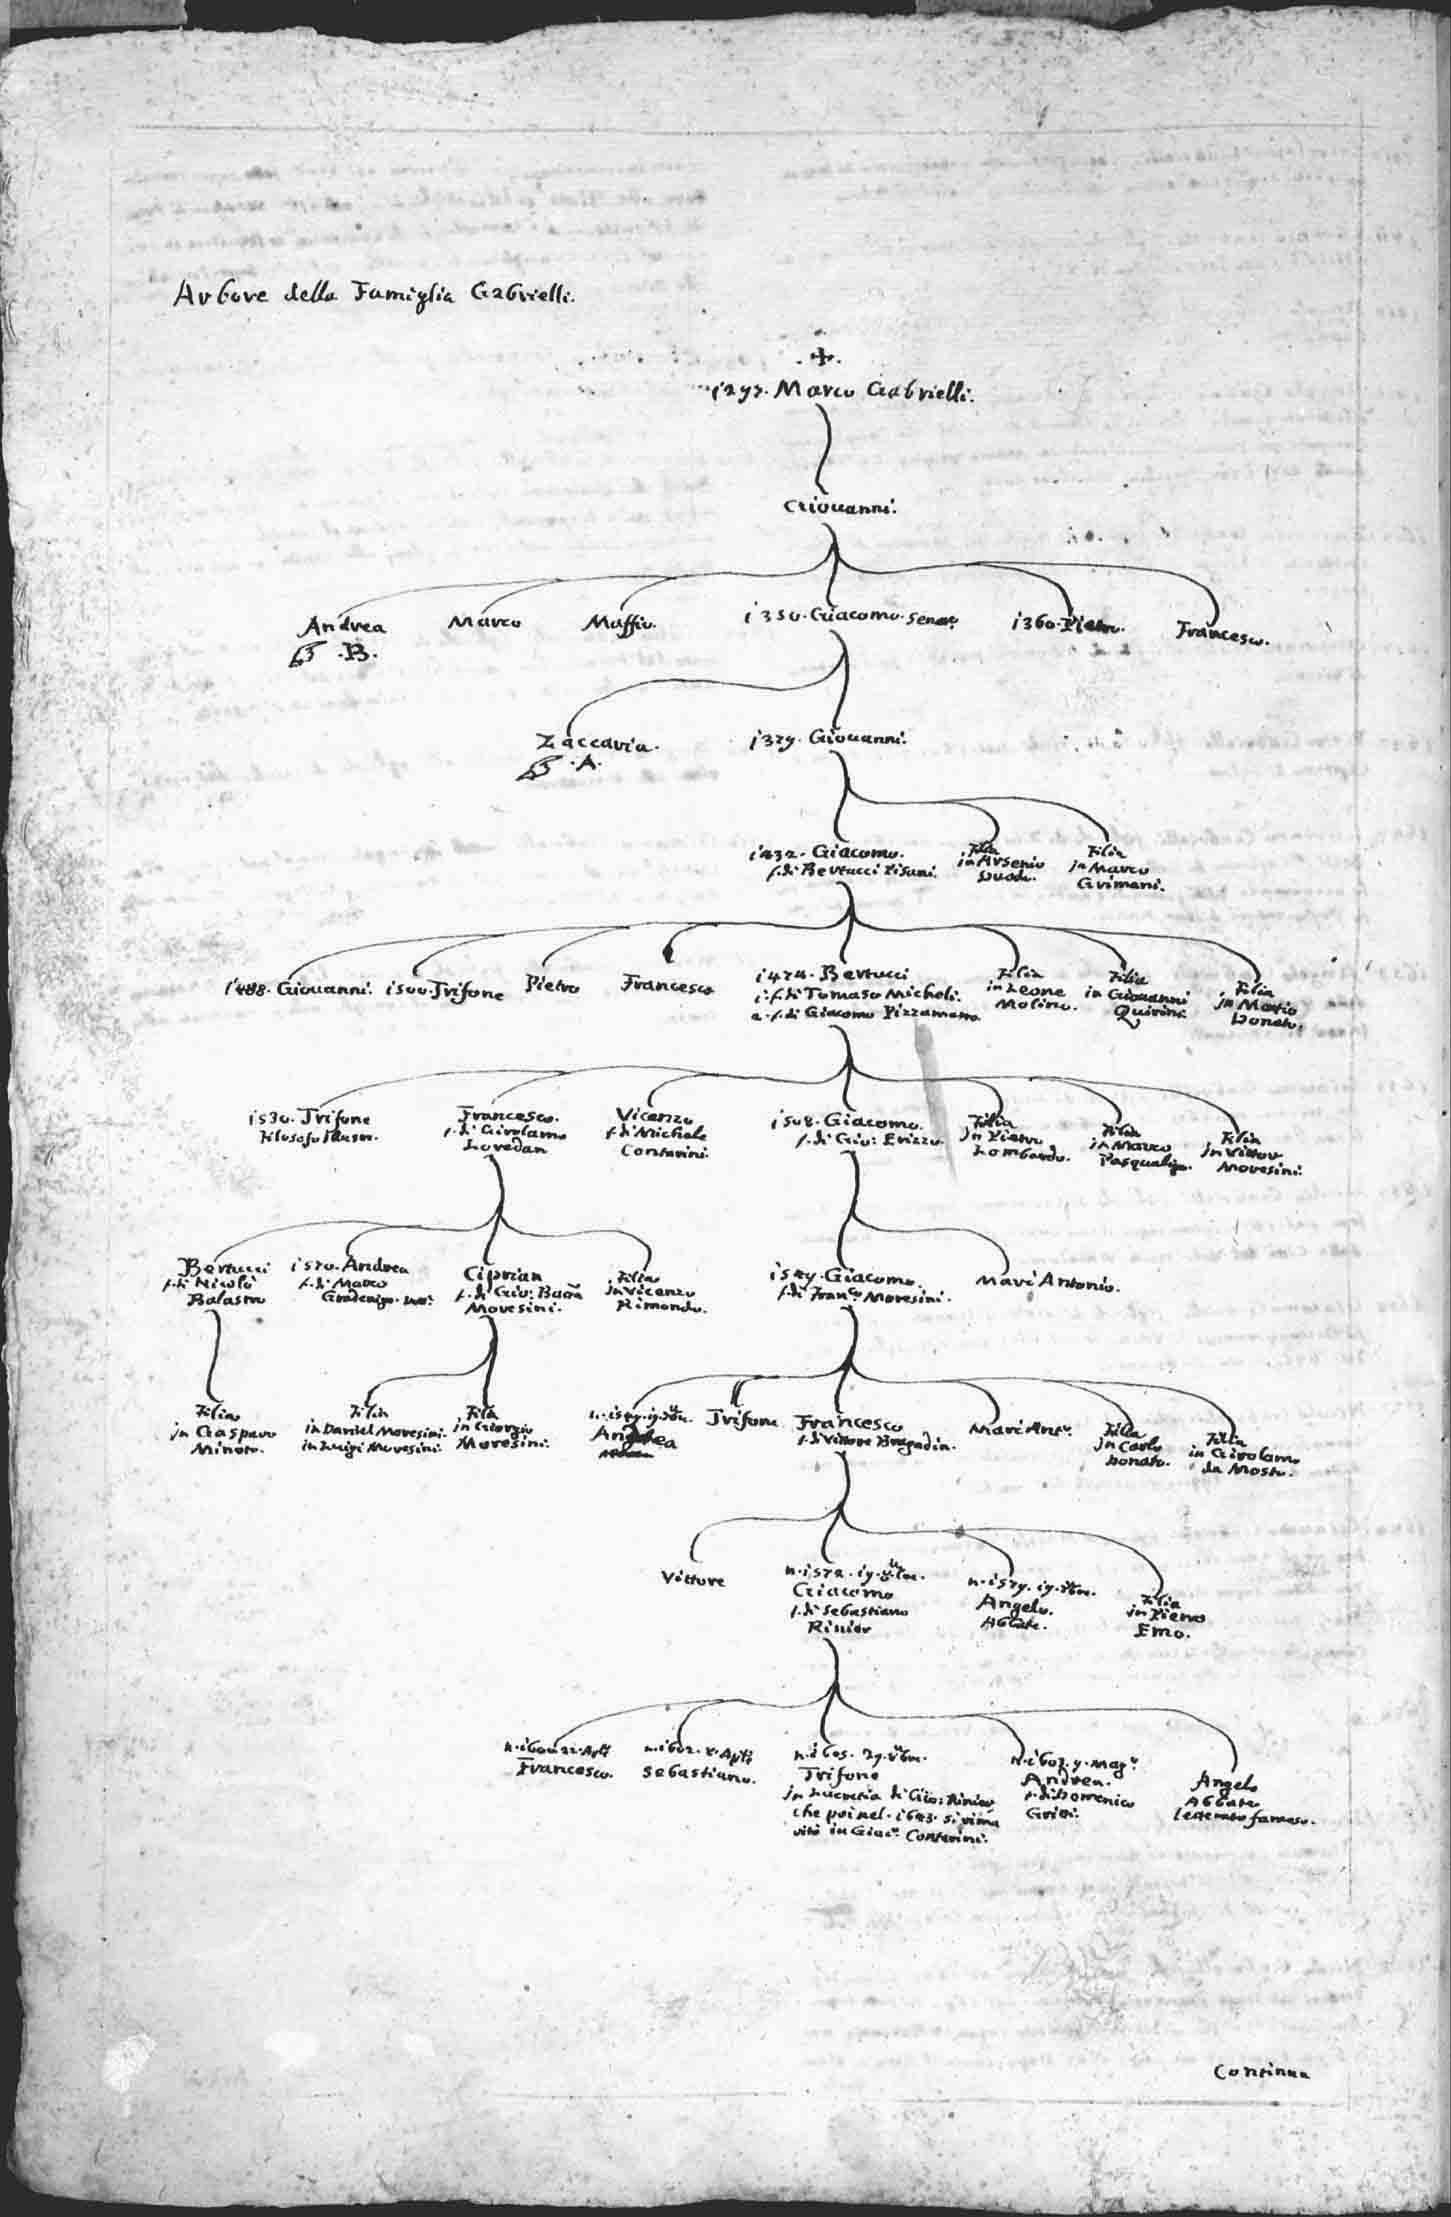 Arbore della Famiglia Gabrielli.
1297. Marco Gabrielli.
Giouanni.
Andrea
.B.
Marco
Maffio.
1350. Giacomo. Senar.
1360. Pietro.
Francesco.
Zaccaria.
.A.
1379. Giouanni.
1432. Giacomo.
f. di Bertucci Pisani.
Filia
in Arsenio
Duodo.
Filia
in Marco
Grimani.
1488. Giouanni.
1500. Trifone
Pietro
Francesco
1474. Bertucci
1. f. di Tomaso Micheli.
2. f. di Giacomo Pizzamano.
Filia
in Leone
Molino.
Filia
in Giouanni
Quirini.
Filia
in Mario
Donato.
1530. Trifone
Filosofo Illustr.
Francesco.
f. di Girolamo
Loredan
Vicenzo
f. di Michele
Contarini.
1508. Giacomo.
f. di Gio: Erizzo.
Filia
in Pietro
Lombardo.
Filia
in Marco
Pasqualigo.
Filia
in Vittor
Moresini.
Bertucci
f. di Nicolò
Balastro
1570. Andrea
f. di Marco
Gradenigo.
Ciprian
f. di Gio: Batta
Moresini.
Filia
in Vicenzo
Rimondo.
1549. Giacomo.
f. di Franco. Moresini.
Mari Antonio.
Filia
in Gasparo
Minoto.
Filia
in Daniel Moresini.
in Luigi Moresini.
Filia
in Giorgio
Moresini.
Trifone
Francesco
f. di Vittore Bragadin.
Mari Anto.
Filia
in Carlo
Donato.
Filia
in Girolamo
da Mosto.
Vittore
n. 1572. 19.
Giacomo
f. di Sebastiano
Rinier
n. 1579. 19.
Angelo.
Abbate.
Filia
in Piero
Emo.
Francesco.
Sebastiano.
n. 1605. 29.
Trifone
in Lucretia di Gio: Rinier
che poi nel. 1643. si rima
ritò in Giaco. Contarini.
n. 1607. 9. Mago.
Andrea.
f. di Domenico
Gritti.
Angelo
Abbate
letterato famoso.
Continua